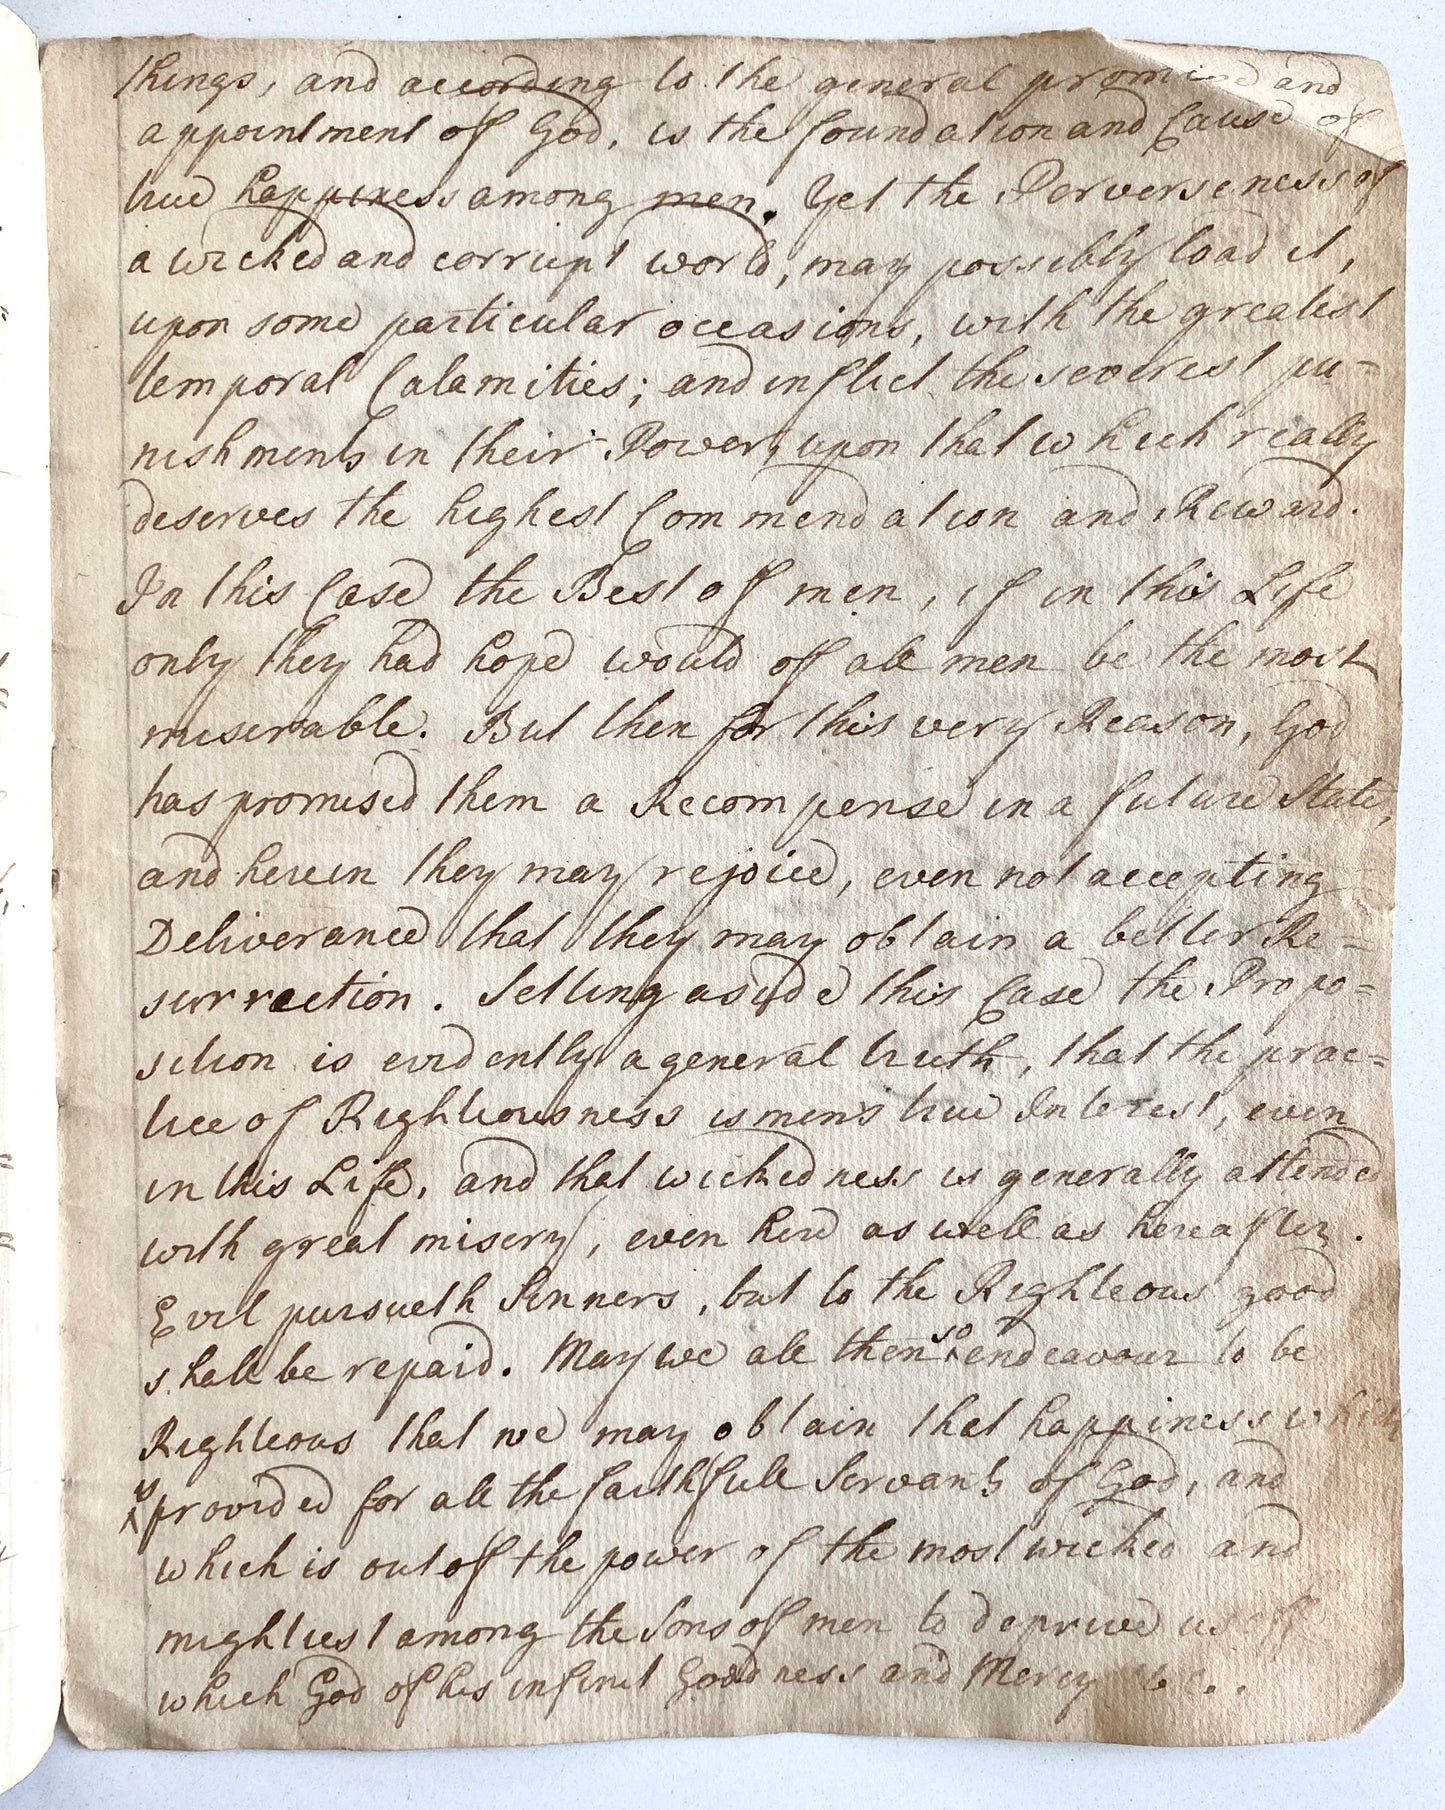 things, and according to the general promised and
appointment off God, is the foundation and Cause of
true happiness among men. Yet the Perverseness of
a wicked and corrupt world, may possibly load it,
upon some particular occasions, with the greatest
temporal Calamities; and inflict the severest pu=
nishments in their Power, upon that which really
deserves the highest Commendation and Reward.
In this Case the Best off men, if in this Life
only they had hope would off all men be the most
miserable. But then for this very Reason, God
has promised them a Recompense in a future State,
and herein they may rejoice, even not accepting
Deliverance that they may obtain a better Re=
surrection. Setting aside this Case the Propo=
sition is evidently a general truth, that the prac=
tice of Righteousness is men's true Interest, even
in this Life, and that wickedness is generally attended
with great misery, even here as well as hereafter.
Evil pursueth Sinners, but to the Righteous good
shall be repaid. May we all then so endeavour to be
Righteous that we may obtain that happiness which
is provided for all the faithfull Servants of God, and
which is out off the power of the most wicked and
mightiest among the Sons off men to deprive us off
which God of his infinit Goodness and Mercy &c.